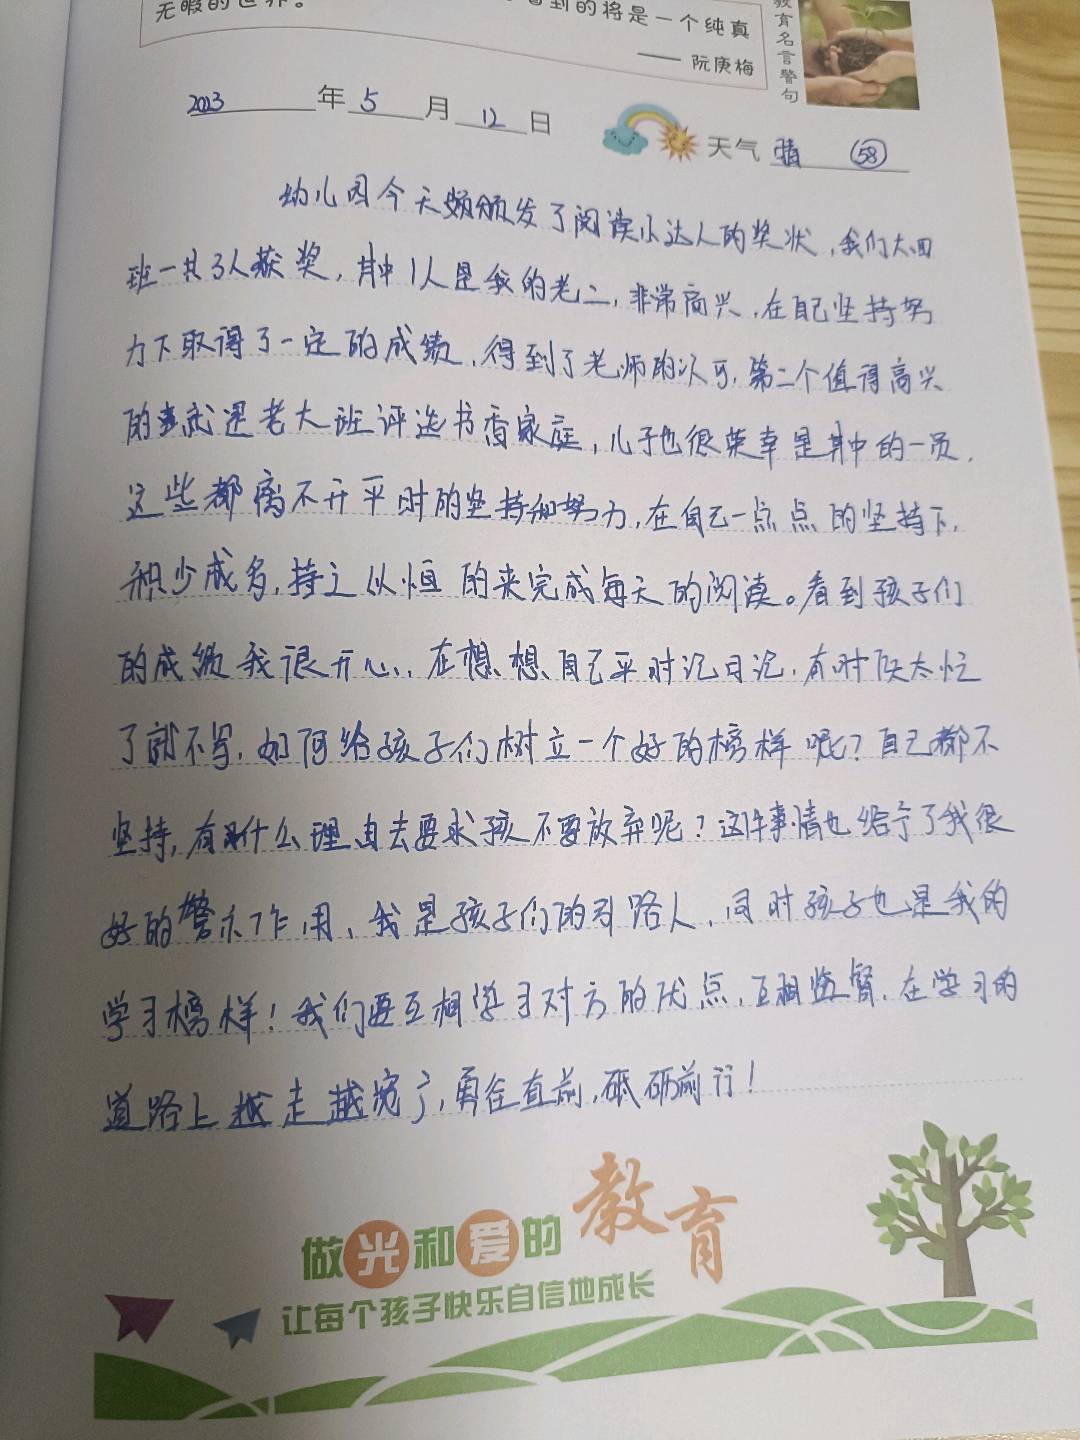 无暇的世界。
看到的将是一个纯真
—— 阮庚梅
教育名言警句
2023年5月12日
天气 晴 58
幼儿园今天颁发了阅读小达人的奖状,我们大四
班一共3人获奖,其中1人是我的老二,非常高兴,在自己坚持努
力下取得了一定的成绩,得到了老师的认可,第二个值得高兴
的是老大班评选书香家庭,儿子也很荣幸是其中的一员,
这些都离不开平时的坚持和努力,在自己一点点的坚持下,
积少成多,持之以恒的来完成每天的阅读。看到孩子们
的成绩我很开心,在想想自己平时记日记,有时候太忙
了就不写,如何给孩子们树立一个好的榜样呢?自己都不
坚持,有什么理由去要求孩不要放弃呢?这件事情也给予了我很
好的警示作用、我是孩子们的引路人,同时孩子也是我的
学习榜样!我们要互相学习对方的优点,互相监督,在学习的
道路上越走越宽广,勇往直前,砥砺前行!
做光和爱的教育
让每个孩子快乐自信地成长